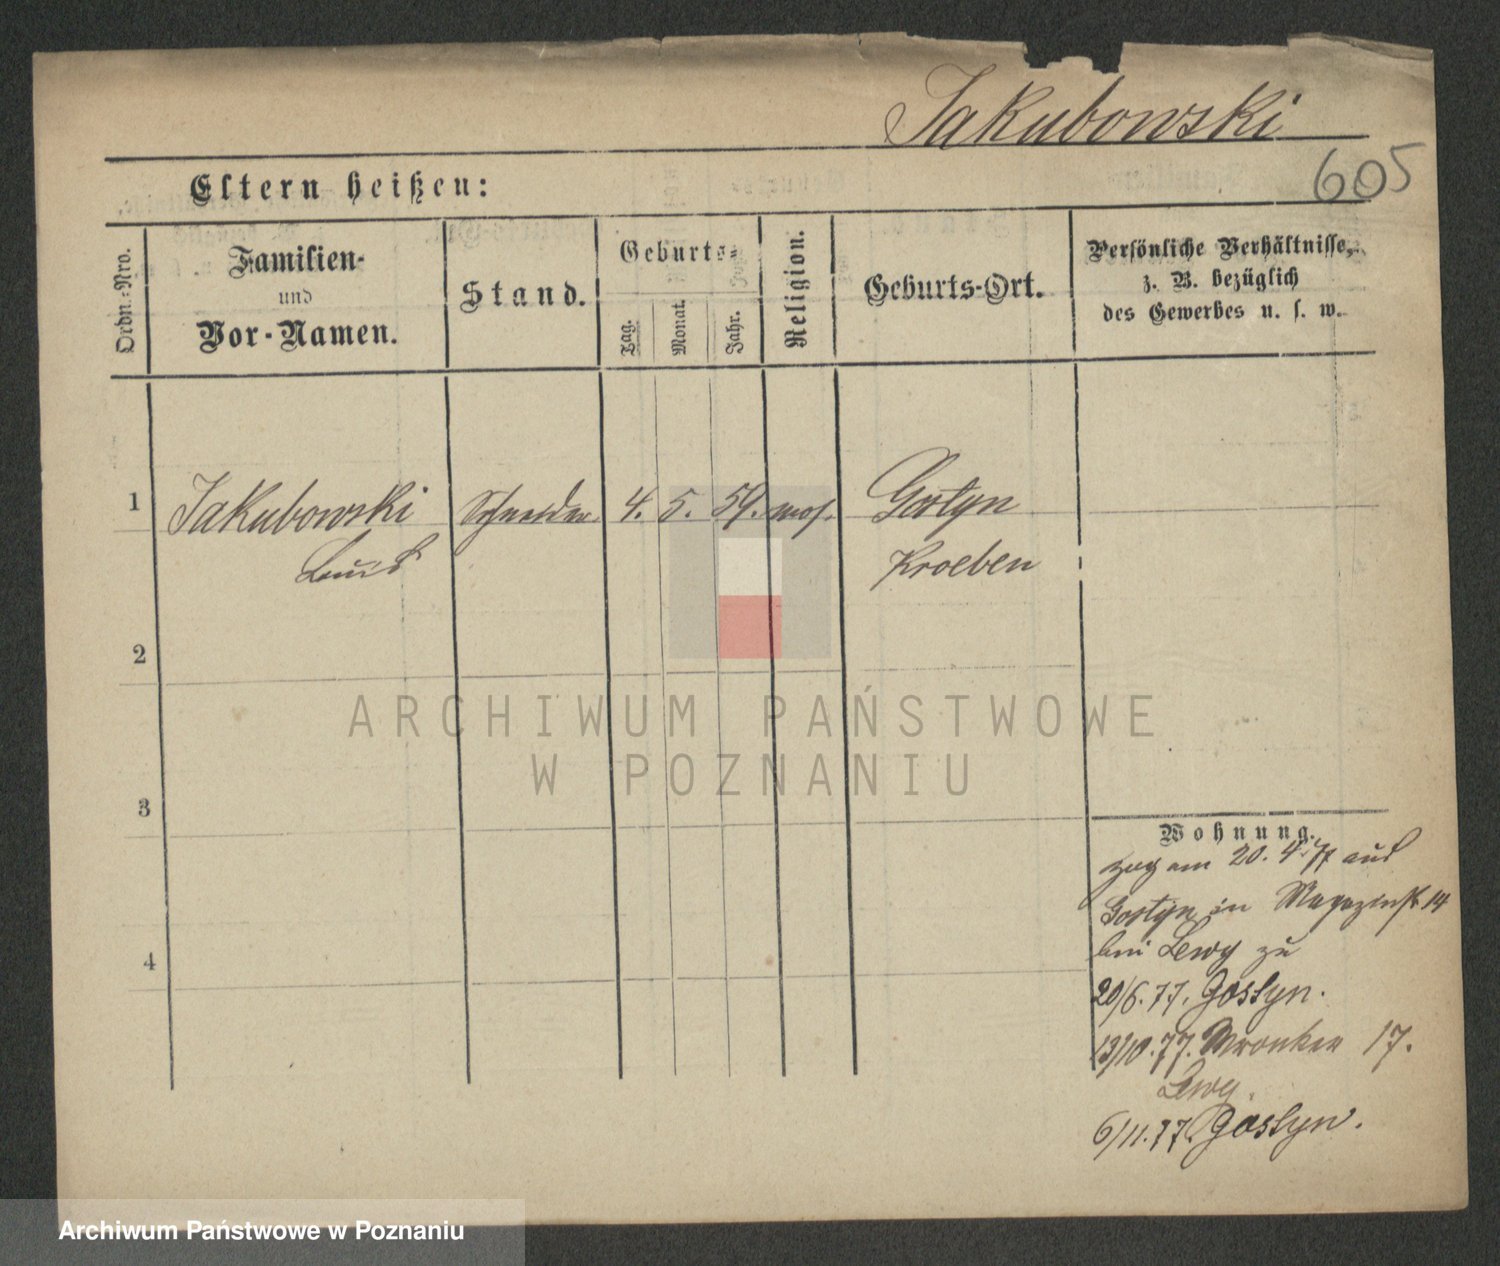 Jakubowski
605
Eltern heißen:
Ordn.-Nro.
Familien-
und
Vor-Namen.
Stand.
Geburts-
Tag.
Monat.
Jahr.
Religion.
Geburts-Ort.
Persönliche Verhältnisse,
z. B. bezüglich
des Gewerbes u. s. w.
1 Jakubowski Schneider 4. 5. 59. mos. Gostyn
Louis Kroeben
2
3
4
ARCHIWUM PAŃSTWOWE
W POZNANIU
Wohnung.
zog am 20. 4. 77 aus
Gostyn in Magazinst 14
bei Lewy zu
20/6. 77. Gostyn.
13/10. 77. Wronker 17.
Lewy.
6/11. 77 Gostyn.
Archiwum Państwowe w Poznaniu